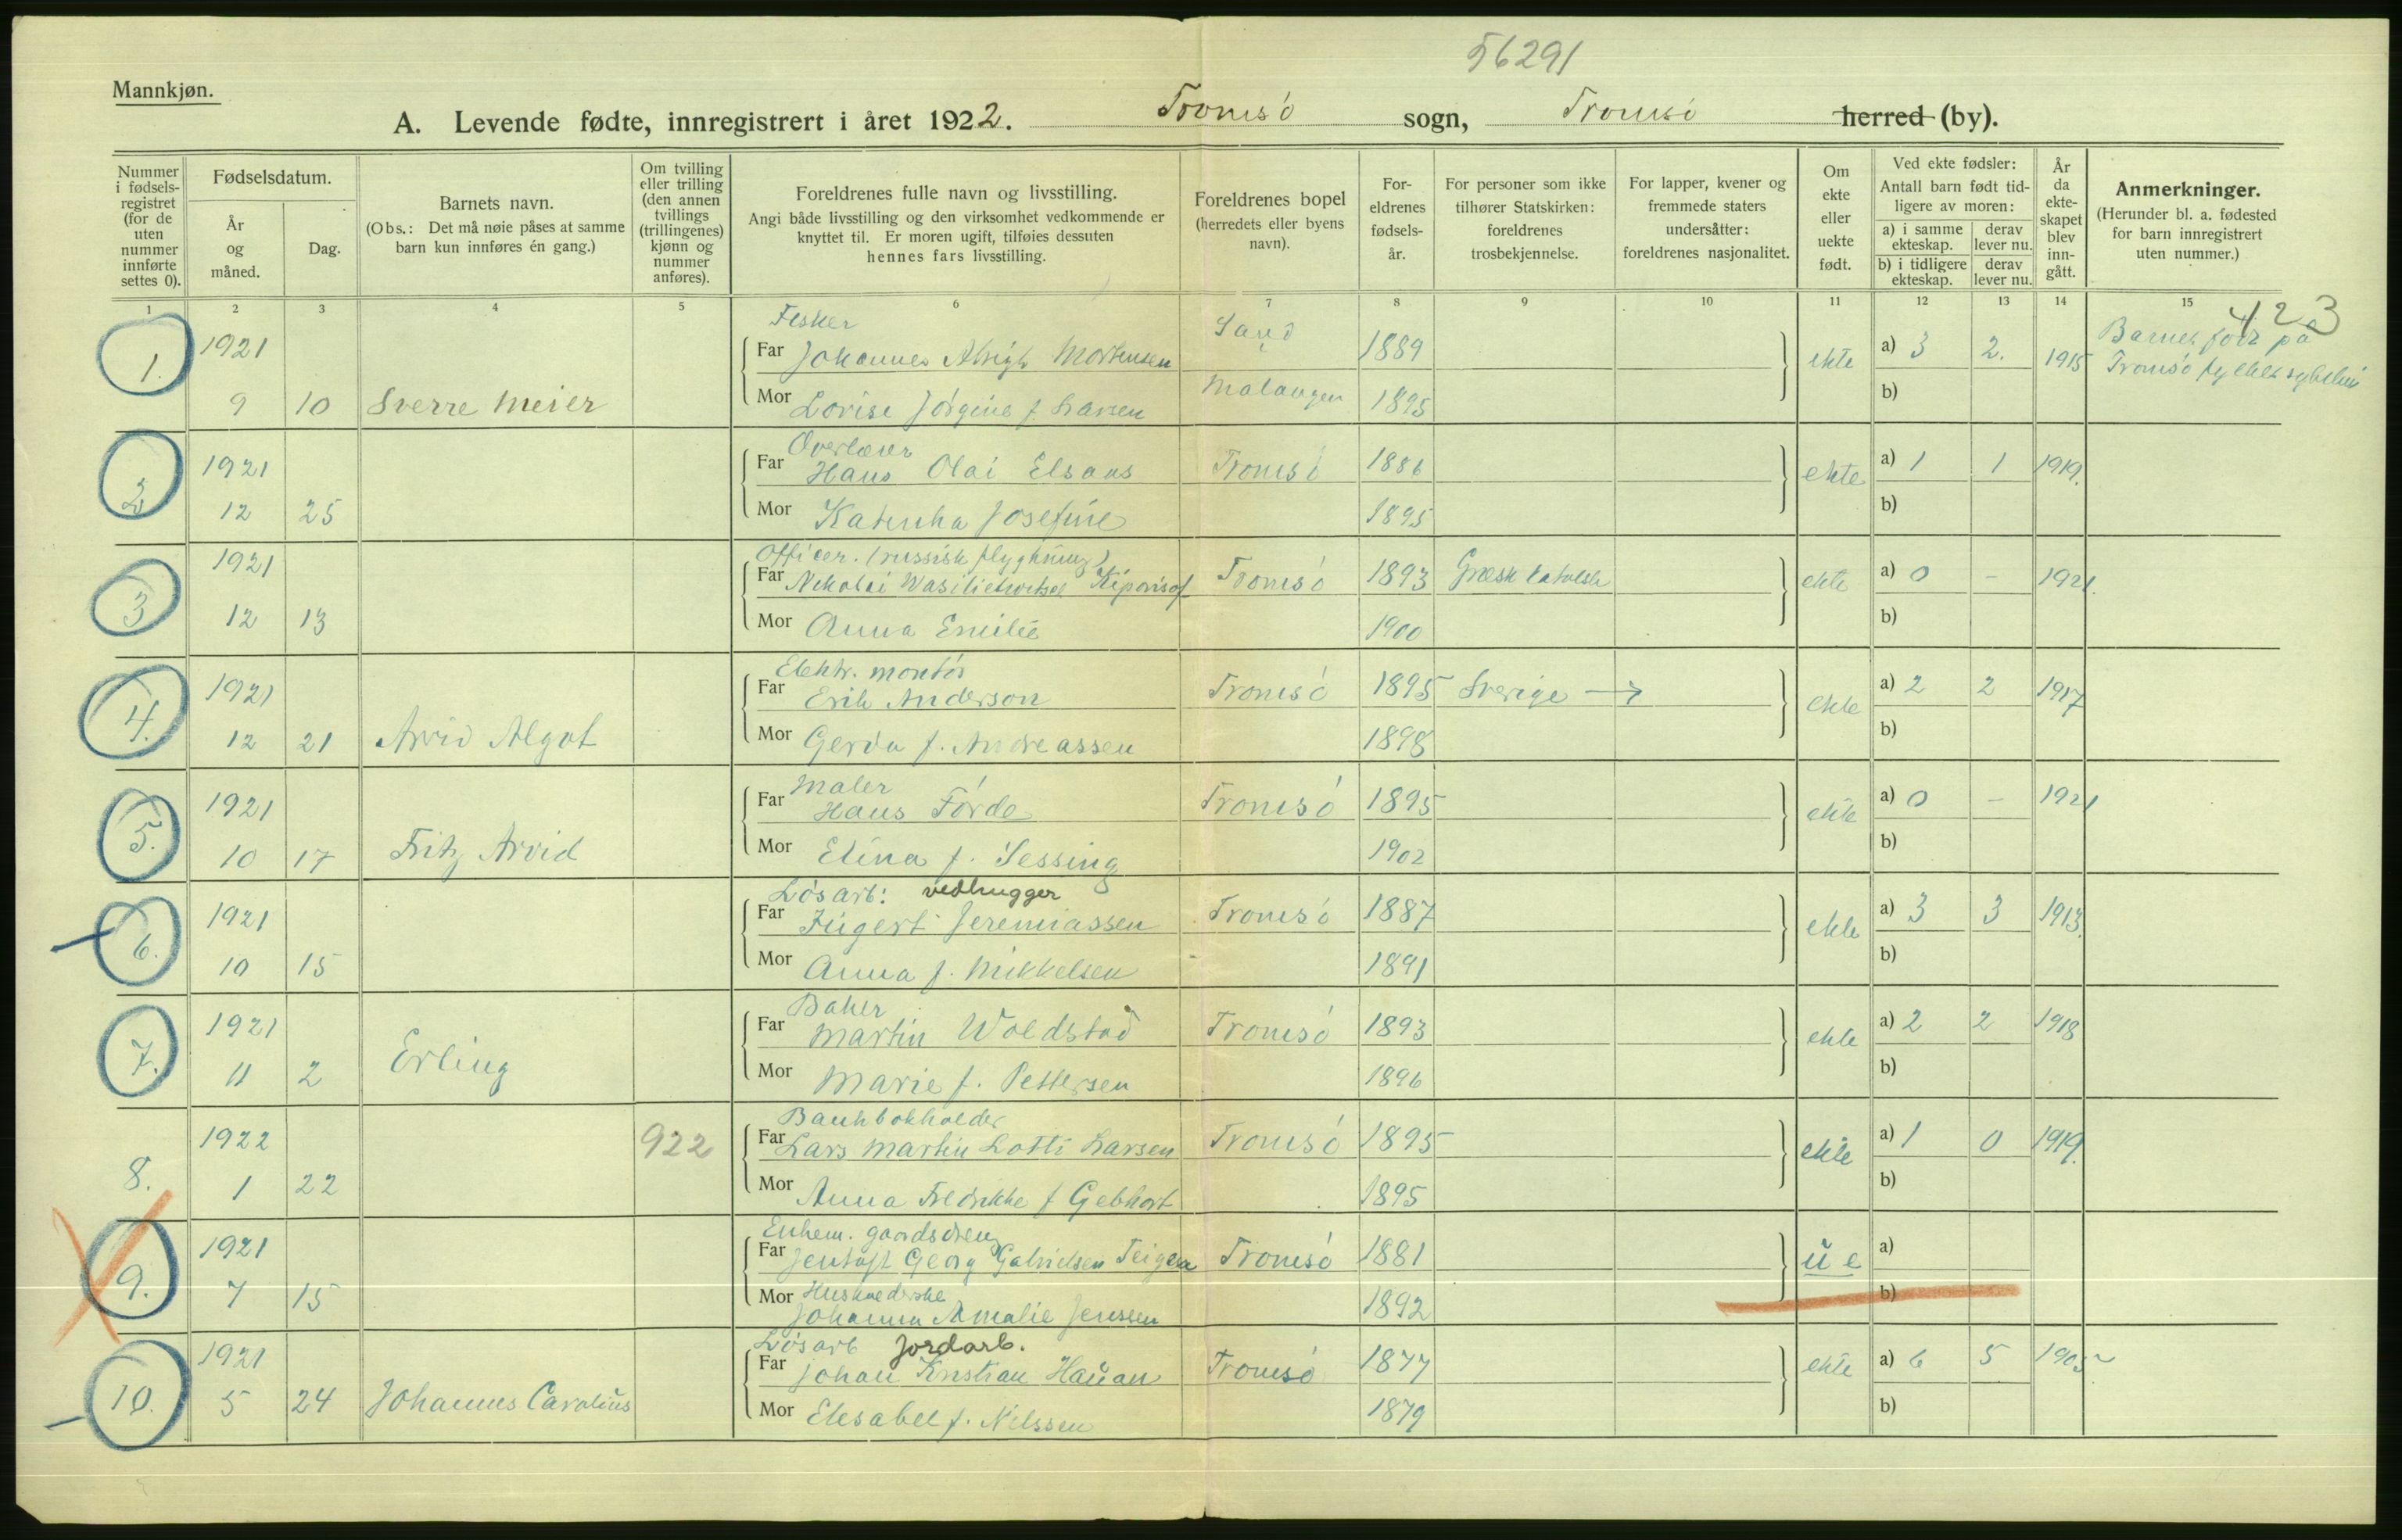 56291
Mannkjøn.
A. Levende fødte, innregistrert i året 1922. Tromsö sogn, Tromsö herred (by).
Nummer i fødsels-registret (for de uten nummer innførte settes 0).
Fødselsdatum.
År og måned.
Dag.
Barnets navn.
(Obs.: Det må nøie påses at samme barn kun innføres én gang.)
Om tvilling eller trilling (den annen tvillings (trillingenes) kjønn og nummer anføres).
Foreldrenes fulle navn og livsstilling.
Angi både livsstilling og den virksomhet vedkommende er knyttet til. Er moren ugift, tilføies dessuten hennes fars livsstilling.
Foreldrenes bopel (herredets eller byens navn).
For-eldrenes fødsels-år.
For personer som ikke tilhører Statskirken: foreldrenes trosbekjennelse.
For lapper, kvener og fremmede staters undersåtter: foreldrenes nasjonalitet.
Om ekte eller uekte født.
Ved ekte fødsler:
Antall barn født tid-ligere av moren:
a) i samme ekteskap.
derav lever nu.
b) i tidligere ekteskap.
derav lever nu.
År da ekte-skapet blev inn-gått.
Anmerkninger.
(Herunder bl. a. fødested for barn innregistrert uten nummer.)
1 2 3 4 5 6 7 8 9 10 11 12 13 14 15
423
Fisker
1. 1921 Far Johannes Mortensen Sand 1889 ekte a) 3 2. 1915 Barnet født på
9 10 Sverre Meier Mor Lovise f. Larsen Malangen 1895 b) Tromsö
Overlærer
2 1921 Far Hans Olai Elsaas Tromsö 1886 ekte a) 1 1 1919.
12 25 Mor Katinka Josefine 1895 b)
Officer. (russisk flygtning)
3 1921 Far Nikolai Tromsö 1893 Græsk katolsk ekte a) 0 - 1921.
12 13 Mor Anna Emilie 1900 b)
Elektr. montör
4. 1921 Far Erik Anderson Tromsö 1895 Sverige → ekte a) 2 2 1917
12 21 Arvid Algot Mor Gerda f. Andreassen 1898 b)
Maler
5. 1921 Far Hans Förde Tromsö 1895 ekte a) 0 - 1921
10 17 Fritz Arvid Mor Elina f. Sessing 1902 b)
Lösarb: vedhugger
6. 1921 Far Jeremiassen Tromsö 1887 ekte a) 3 3 1913.
10 15 Mor Anna f. Mikkelsen 1891 b)
Baker
7. 1921 Far Martin Woldstad Tromsö 1893 ekte a) 2 2 1918
11 2 Erling Mor Marie f. Pettersen 1896 b)
Bankbokholder
8. 1922 922 Far Lars Martin Lotti Larsen Tromsö 1895 ekte a) 1 0 1919.
1 22 Mor Anna Fredrikke f Gebhart 1895 b)
Enkem. gaardsdreng
9. 1921 Far Jentoft Georg Gabrielsen Teigen Tromsö 1881 u e a)
7 15 Mor Johanna Amalie Jenssen 1892 b)
Lösarb Jordarb.
10. 1921 Far Johan Kristian Hauan Tromsö 1877 ekte a) 6 5 1905
5 24 Johannes Carolius Mor Elesabet f. Nilssen 1879 b)